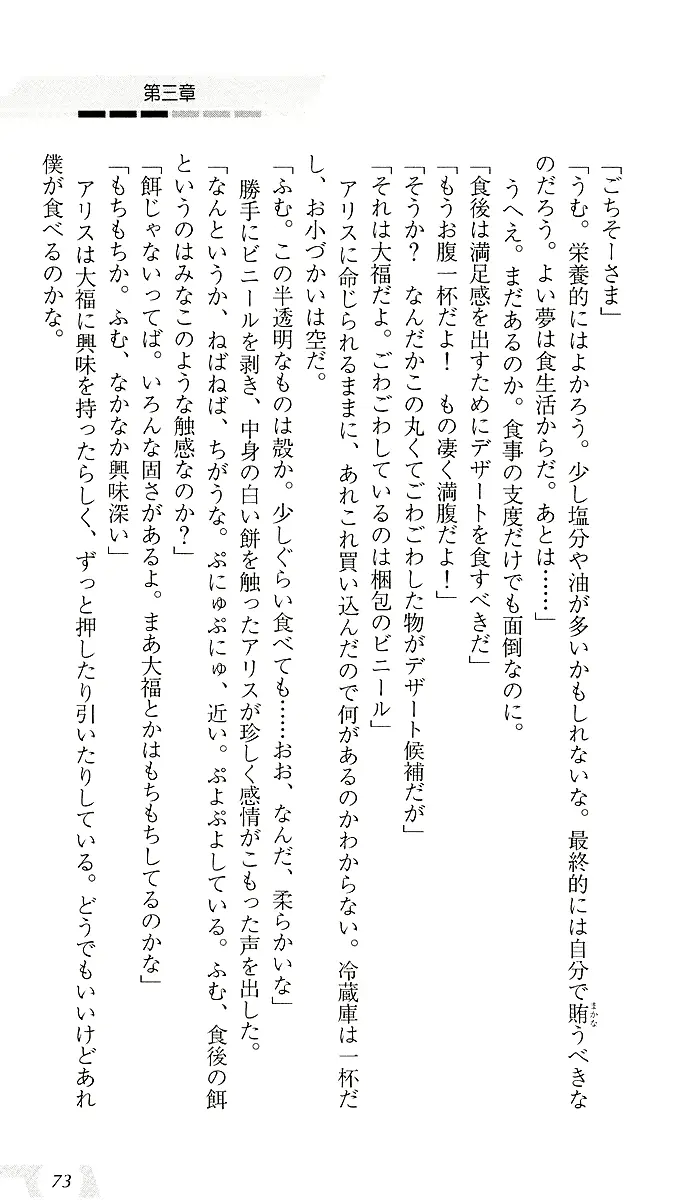 第三章
「ごちそーさま」
「うむ。栄養的にはよかろう。少し塩分や油が多いかもしれないな。最終的には自分で賄うべきな
まかな
のだろう。よい夢は食生活からだ。あとは……」
うへえ。まだあるのか。食事の支度だけでも面倒なのに。
「食後は満足感を出すためにデザートを食すべきだ」
「もうお腹一杯だよ！　もの凄く満腹だよ！」
「そうか？　なんだかこの丸くてごわごわした物がデザート候補だが」
「それは大福だよ。ごわごわしているのは梱包のビニール」
アリスに命じられるままに、あれこれ買い込んだので何があるのかわからない。冷蔵庫は一杯だ
し、お小づかいは空だ。
「ふむ。この半透明なものは殻か。少しぐらい食べても……おお、なんだ、柔らかいな」
勝手にビニールを剥き、中身の白い餅を触ったアリスが珍しく感情がこもった声を出した。
「なんというか、ねばねば、ちがうな。ぷにゅぷにゅ、近い。ぷよぷよしている。ふむ、食後の餌
というのはみなこのような触感なのか？」
「餌じゃないってば。いろんな固さがあるよ。まあ大福とかはもちもちしてるのかな」
「もちもちか。ふむ、なかなか興味深い」
アリスは大福に興味を持ったらしく、ずっと押したり引いたりしている。どうでもいいけどあれ
僕が食べるのかな。
73